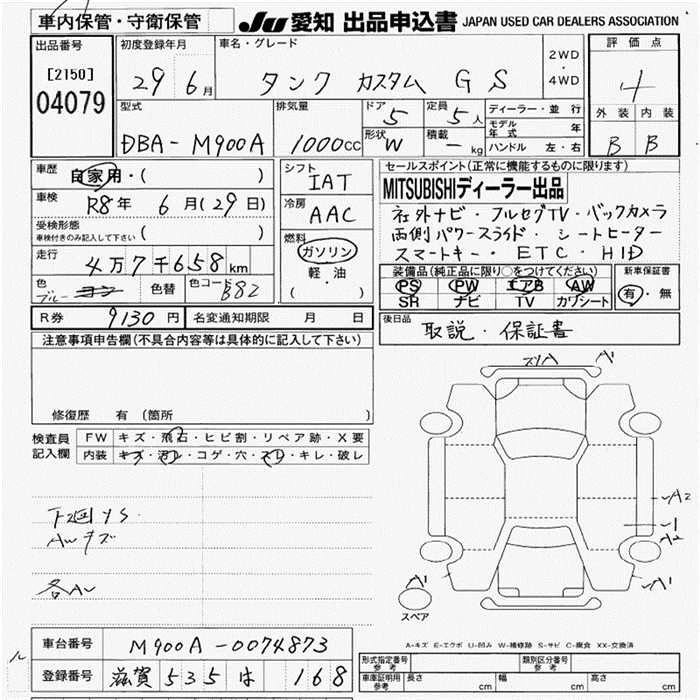 車内保管・守衛保管 JU 愛知 出品申込書 JAPAN USED CAR DEALERS ASSOCIATION
出品番号 初度登録年月 車名・グレード 2WD・4WD 評価点
[2150] 29 6月 タンク カスタム G S 4
04079 型式 排気量 ドア 5 定員 5人 ディーラー・並行 外装 内装
DBA-M900A 1000cc 形状 W 積載 - kg モデル年式 年 B B
ハンドル 左・右
車歴 自家用・( ) シフト IAT セールスポイント(正常に機能するものに限ります)
車検 R8年 6月(29日) 冷房 AAC MITSUBISHIディーラー出品
受検形態 車検付きのみ記入して下さい ( ) 燃料 社外ナビ・フルセグTV・バックカメラ
走行 4万7千658km ガソリン 両側パワースライド・シートヒーター
色 ブルー 色替 色コード B82 軽・油 ( ) スマートキー・ETC・HID
装備品(純正品に限り○をつけてください) 新車保証書
PS PW エアB AW 有・無
SR ナビ TV カワシート
R券 9130円 名変通知期限 月 日 後日品 取説・保証書
注意事項申告欄(不具合内容等は具体的に記入して下さい)
修復歴 有(箇所 )
検査員記入欄 FW キズ・飛石・ヒビ割・リペア跡・X要
内装 キズ・汚レ・コゲ・穴・スレ・キレ・破レ
A1
A2
1
A2
A1
A1
スペア
下回りS
AWキズ
各A
A-キズ E-エクボ U-凹み W-補修跡 S-サビ C-腐食 XX-交換済
車台番号 M900A-0074873
登録番号 滋賀 535 は 168
形式指定番号 参考 類別区分番号 参考
車庫証明用 参考 長さ cm 幅 cm 高さ cm